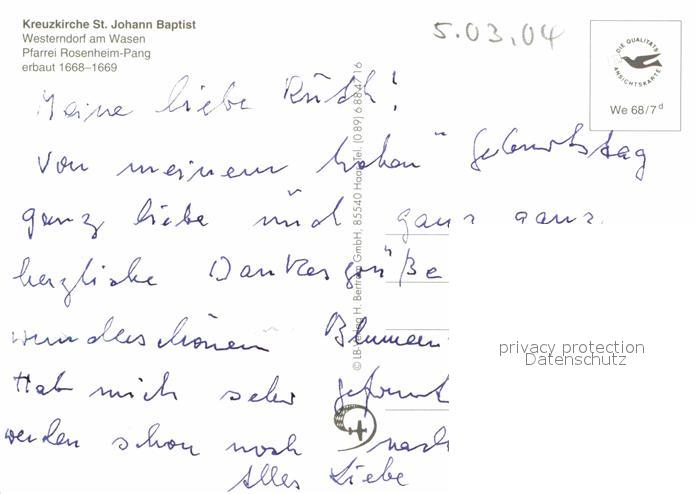 Kreuzkirche St. Johann Baptist
Westerndorf am Wasen
Pfarrei Rosenheim-Pang
erbaut 1668–1669
5.03.04
DIE QUALITÄTS
ANSICHTSKARTE
We 68/7d
Meine liebe Ruth!
Von meinem "hohen" Geburtstag
ganz liebe und ganz ganz
herzliche Dankesgrüße
wunderschönen Blumen
Hab mich sehr gefreut
werden schon noch nach
Alles Liebe
© LB-Verlag H. Bertram GmbH, 85540 Haar, Tel. (089) 6 88 47 16
privacy protection
Datenschutz